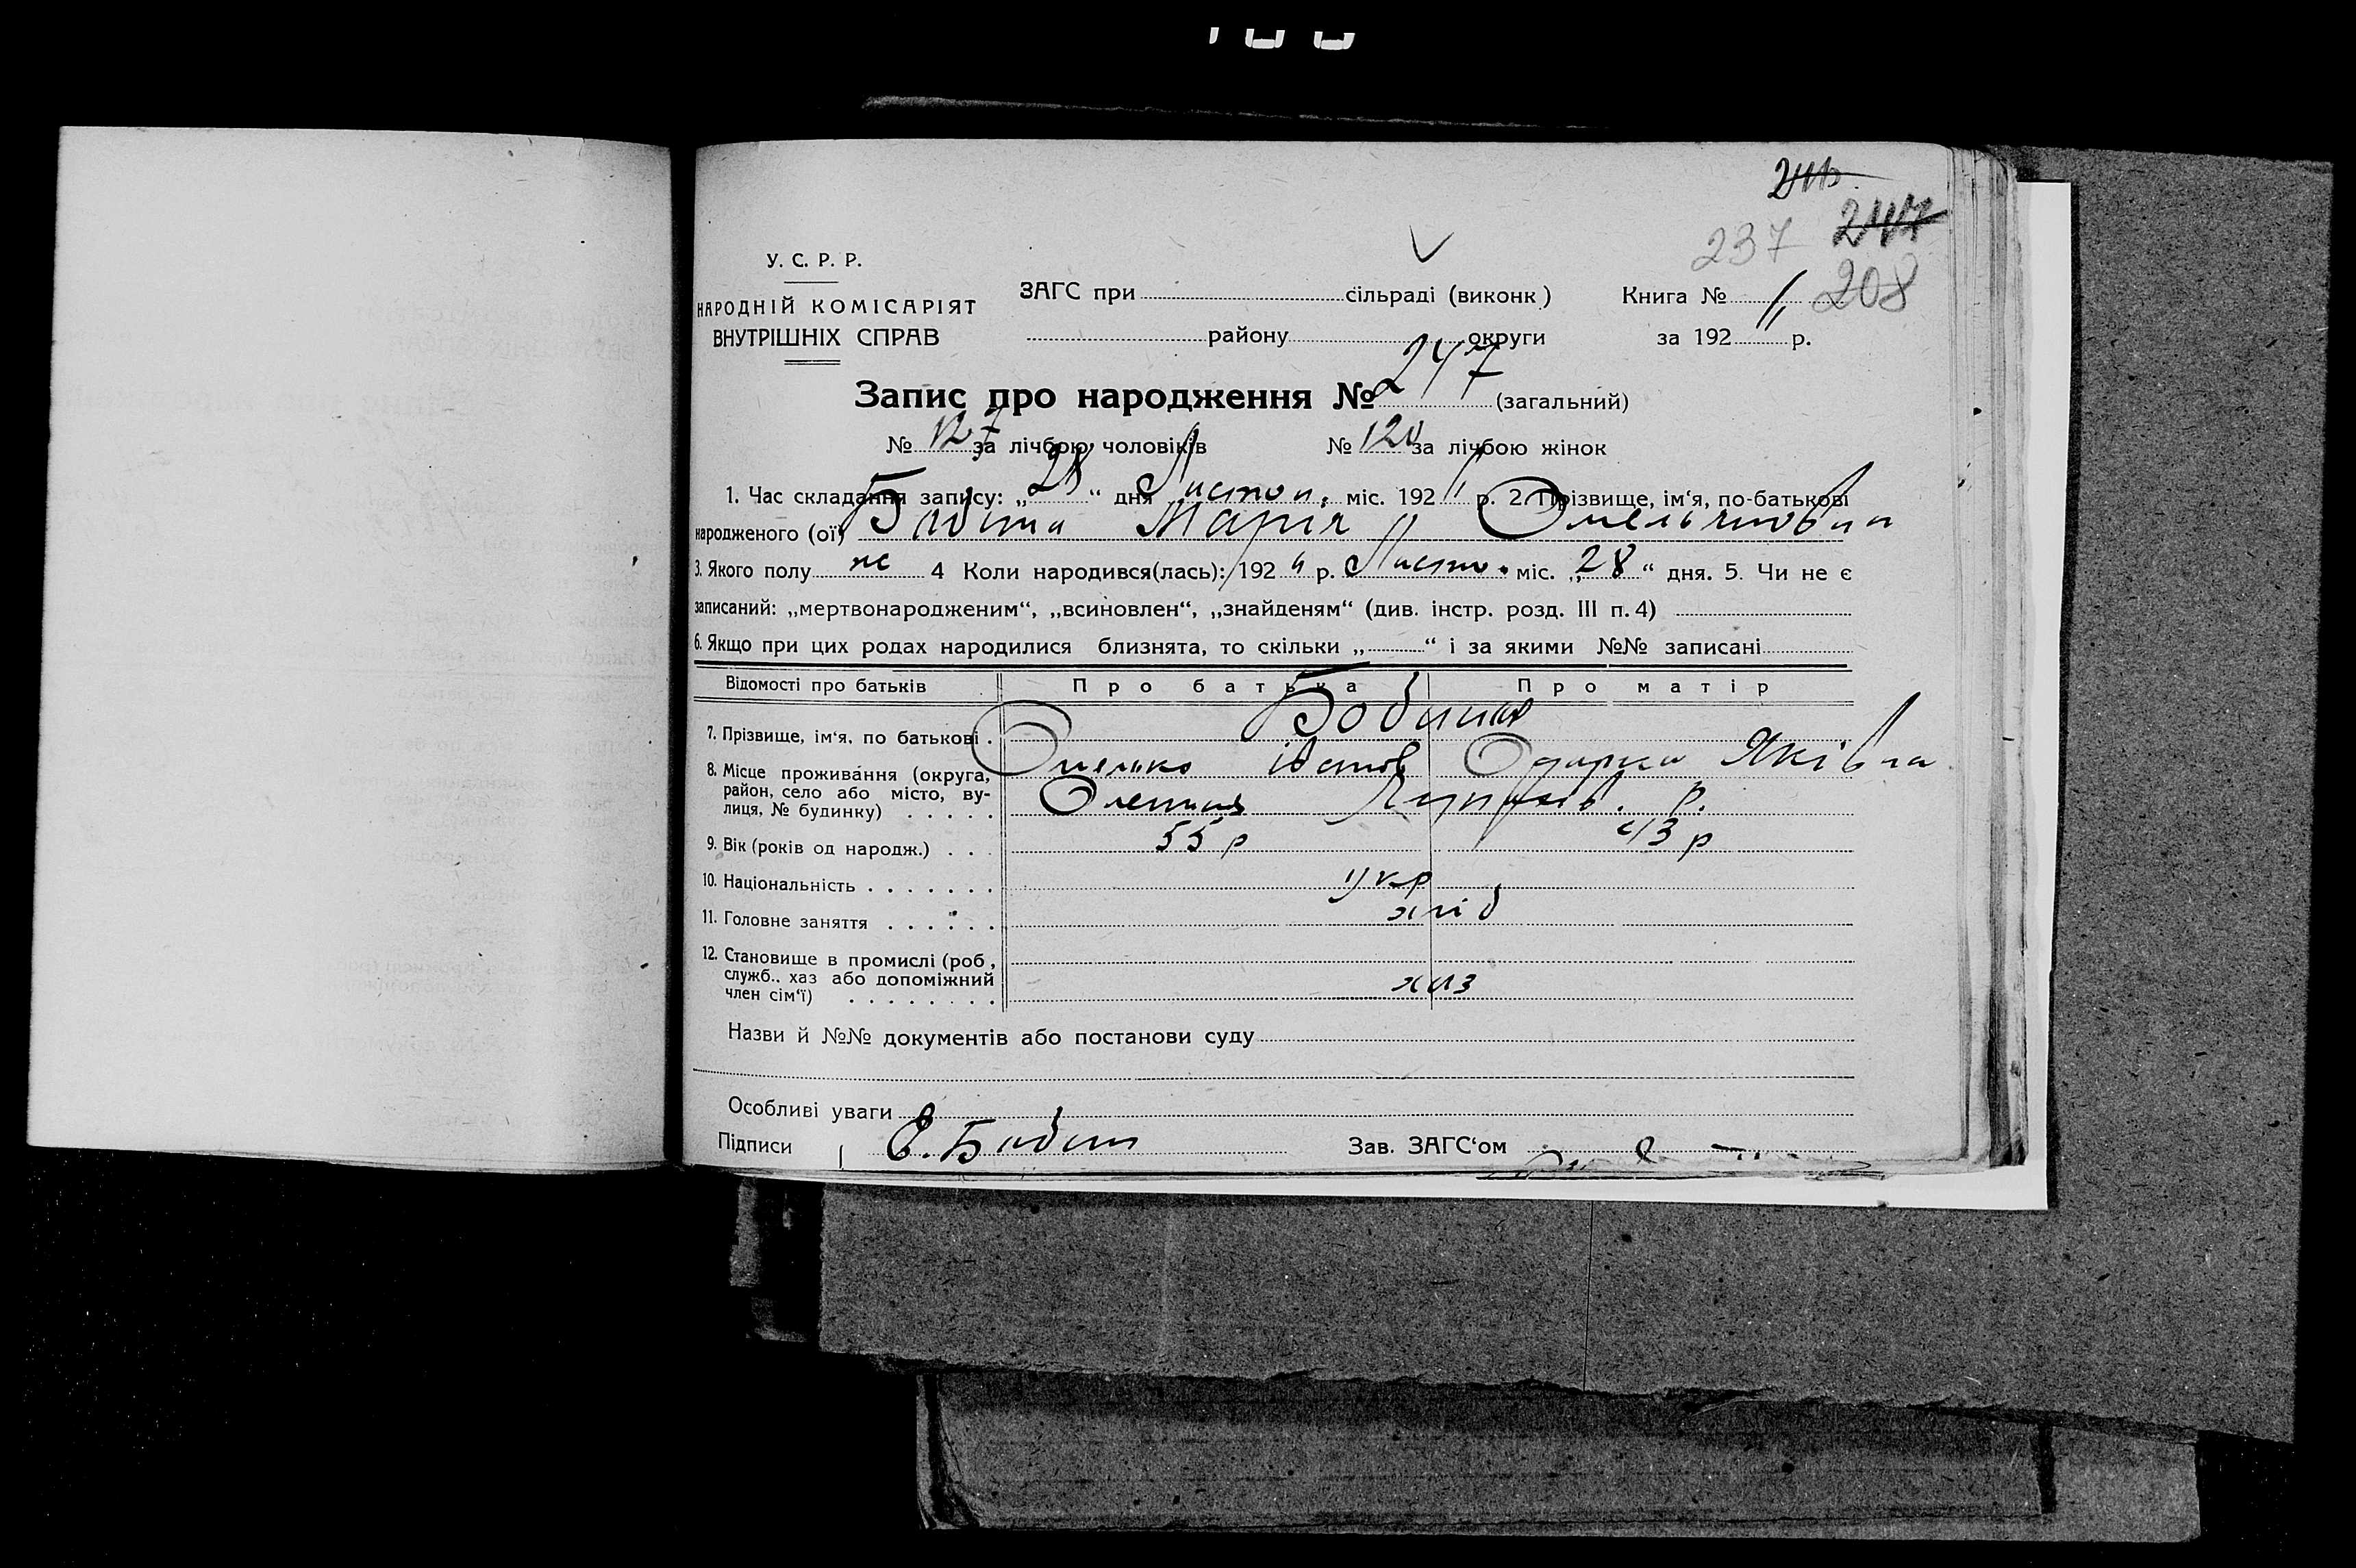 237
208
У. С. Р. Р.
НАРОДНІЙ КОМІСАРІЯТ
ВНУТРІШНІХ СПРАВ
ЗАГС при сільраді (виконк)
району округи
Книга №
за 192 р.
Запис про народження № 247 (загальний)
№ 127 за лічбою чоловіків № 120 за лічбою жінок
1. Час складання запису: „28“ дня Листоп. міс. 192 р. 2. Прізвище, ім‘я, по-батькові
народженого (ої) Марія Омельяновна
3. Якого полу ж 4 Коли народився(лась): 192 р. Листо. міс. „28“ дня. 5. Чи не є
записаний: „мертвонародженим“, „всиновлен“, „знайденям“ (див. інстр. розд. III п. 4)
6. Якщо при цих родах народилися близнята, то скільки „ “ і за якими №№ записані
Відомості про батьків Про батька Про матір
7. Прізвище, ім‘я, по батькові .
Омелько Іванов Одарка Яківна
8. Місце проживання (округа,
район, село або місто, ву-
лиця, № будинку) . . . . .
р.
9. Вік (років од народж.) . . . 55 р 43 р
10. Національність . . . . . . . укр
11. Головне заняття . . . . . . хліб
12. Становище в промислі (роб,
служб.. хаз або допоміжний
член сім‘ї) . . . . . . . . хаз
Назви й №№ документів або постанови суду
Особливі уваги
Підписи Зав. ЗАГС‘ом